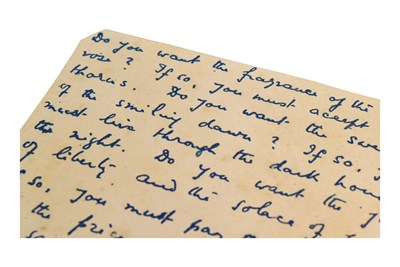 Do you want the fragrance of the
rose? If so, you must accept
thorns. Do you want the
of the smiling dawn? If so,
must live through the dark hour
the night. Do you want the
of liberty and the solace of
so, you must pay
the price